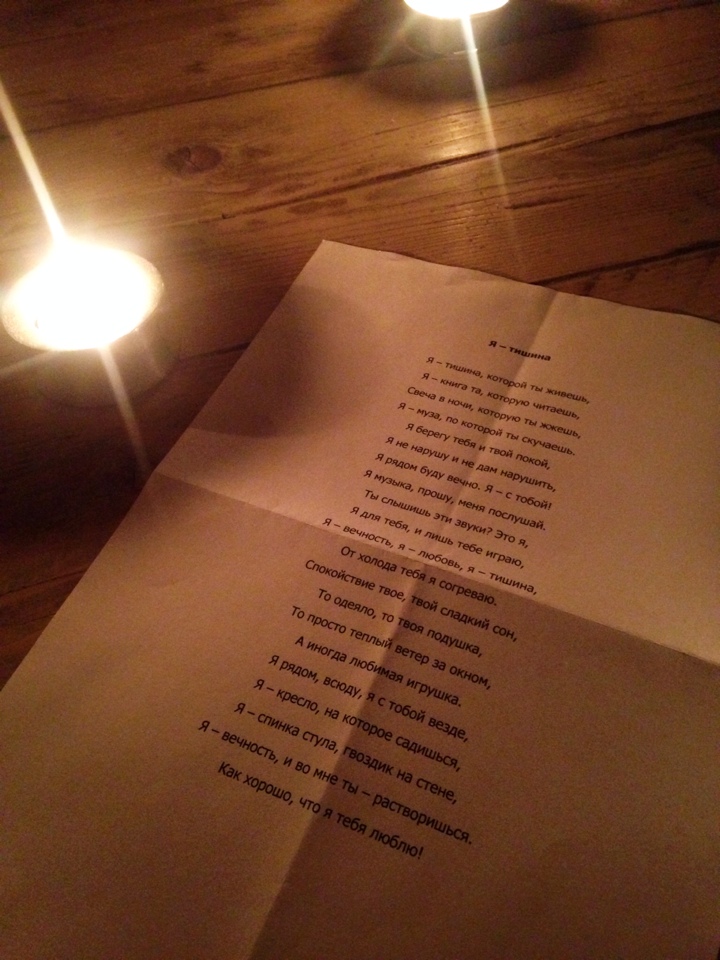 Я – тишина
Я – тишина, которой ты живешь,
Я – книга та, которую читаешь,
Свеча в ночи, которую ты жжешь,
Я – муза, по которой ты скучаешь.
Я берегу тебя и твой покой,
Я не нарушу и не дам нарушить,
Я рядом буду вечно. Я – с тобой!
Я музыка, прошу, меня послушай.
Ты слышишь эти звуки? Это я,
Я для тебя, и лишь тебе играю,
Я – вечность, я – любовь, я – тишина,
От холода тебя я согреваю.
Спокойствие твое, твой сладкий сон,
То одеяло, то твоя подушка,
То просто теплый ветер за окном,
А иногда любимая игрушка.
Я рядом, всюду, я с тобой везде,
Я – кресло, на которое садишься,
Я – спинка стула, гвоздик на стене,
Я – вечность, и во мне ты – растворишься.
Как хорошо, что я тебя люблю!